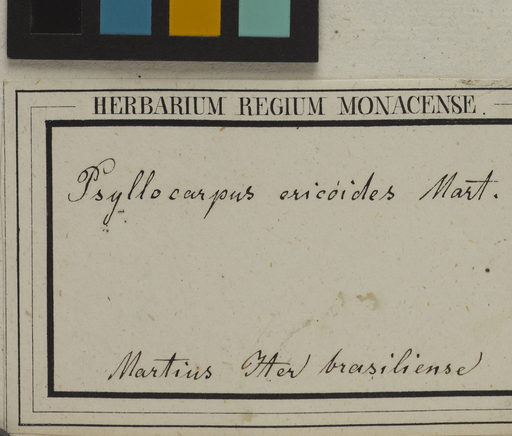 HERBARIUM REGIUM MONACENSE.
Psyllocarpus ericóides Mart.
Martius Iter brasiliense